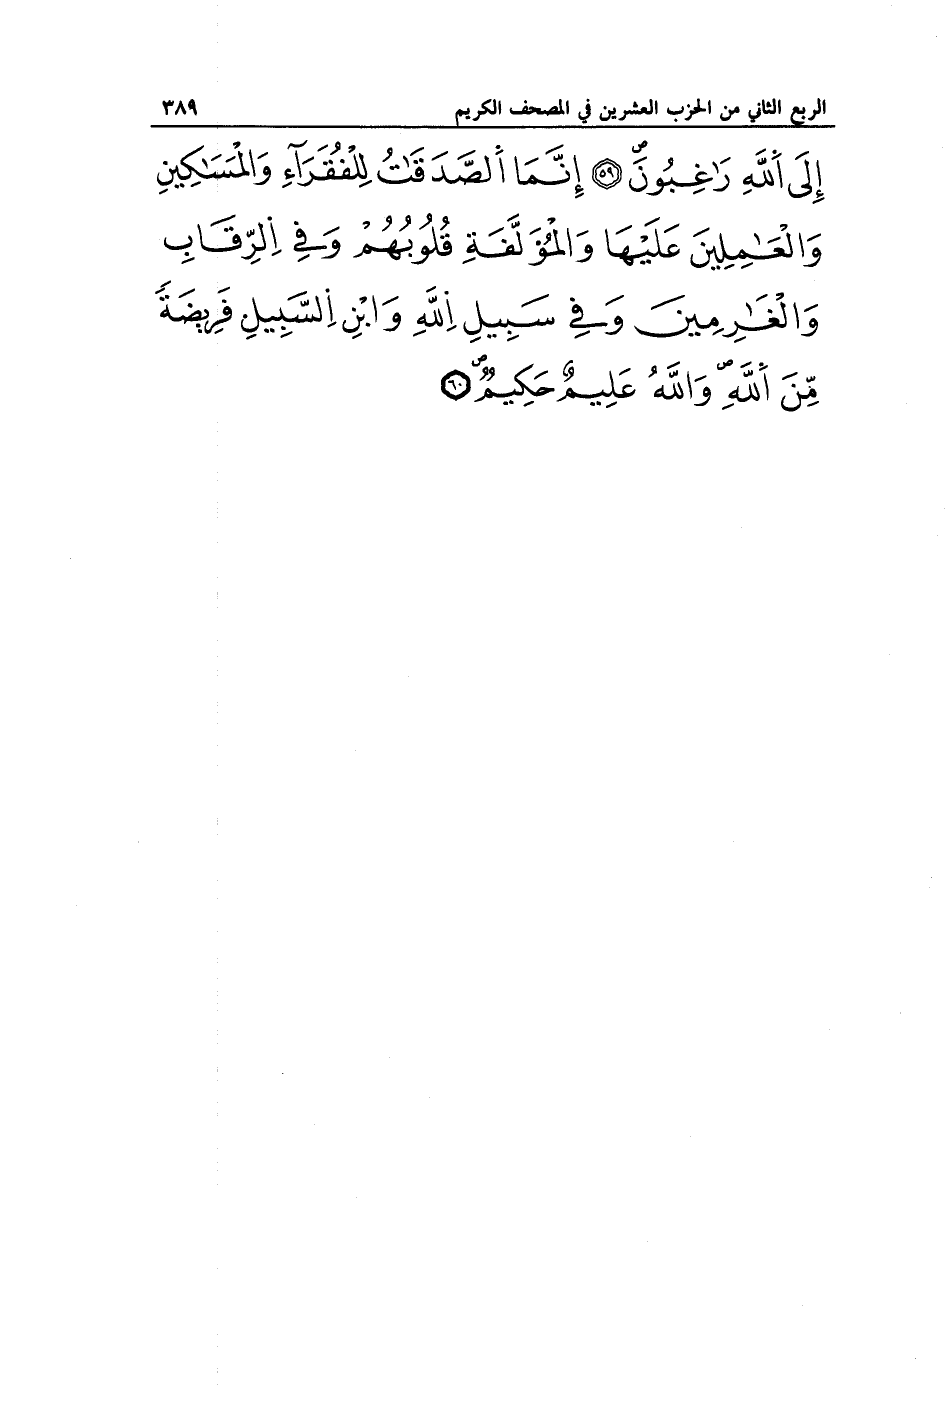 الربع الثاني من الحزب العشرين في المصحف الكريم ٣٨٩
إِلَى اَ۬للَّهِ رَٰغِبُونَۖ ٥٩ إِنَّمَا اَ۬لصَّدَقَٰتُ لِلْفُقَرَآءِ وَالْمَسَٰكِينِ
وَالْعَٰمِلِينَ عَلَيْهَا وَالْمُؤَلَّفَةِ قُلُوبُهُمْ وَفِي اِ۬لرِّقَابِ
وَالْغَٰرِمِينَ وَفِي سَبِيلِ اِ۬للَّهِ وَابْنِ اِ۬لسَّبِيلِ فَرِيضَةً
مِّنَ اَ۬للَّهِۖ وَاللَّهُ عَلِيمٌ حَكِيمٌۖ ٦٠